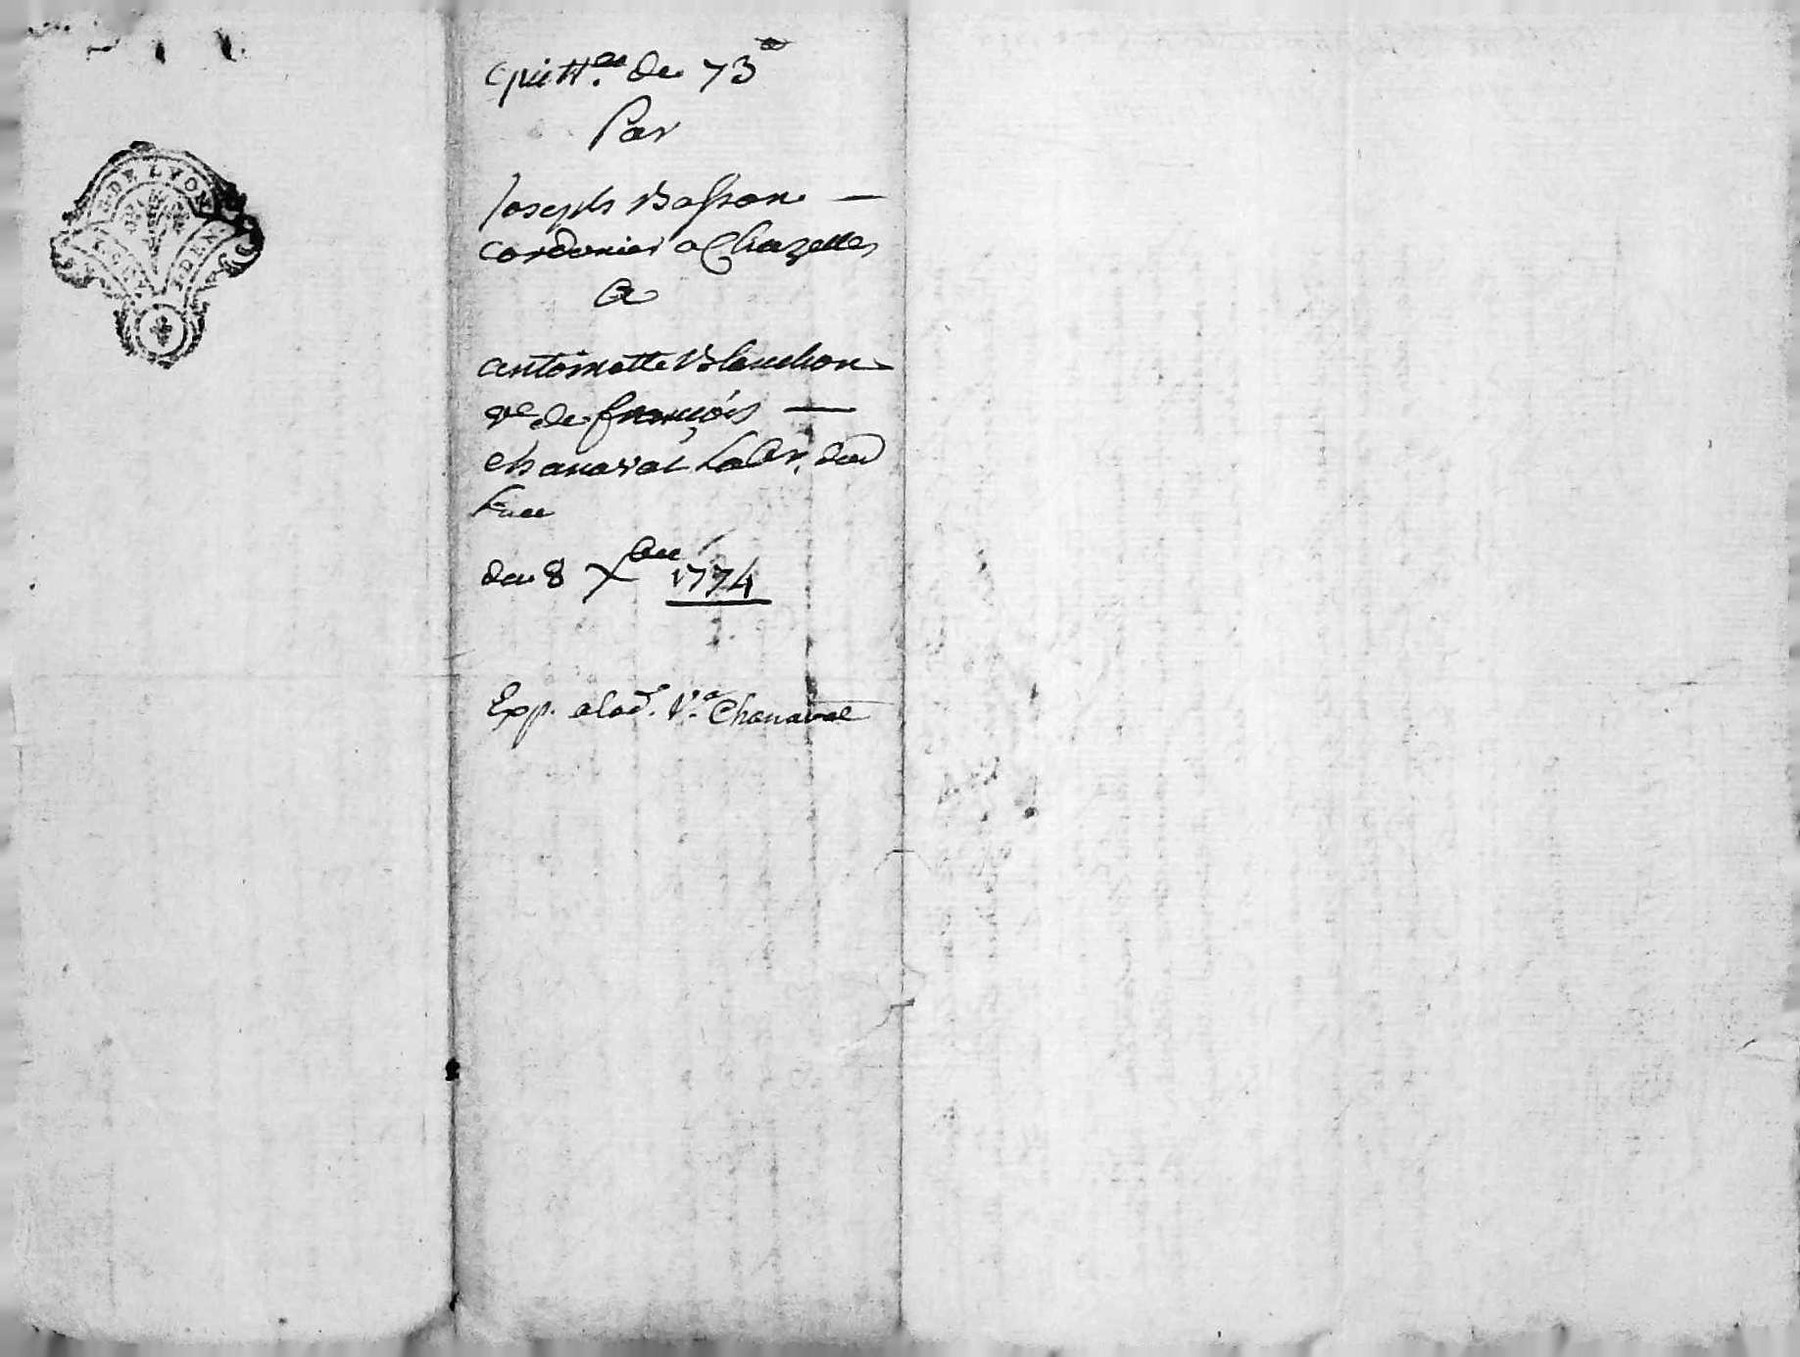 G. DE LYON
GEN
DEN
quitt.ce de 73
Par
Joseph Basson —
cordonier a Chazelles
A
antoinette Blanchon
ve de françois —
chanavat Labr. dud
Lieu
du 8 Xbre 1774
Exp. a lad. Ve Chanavat